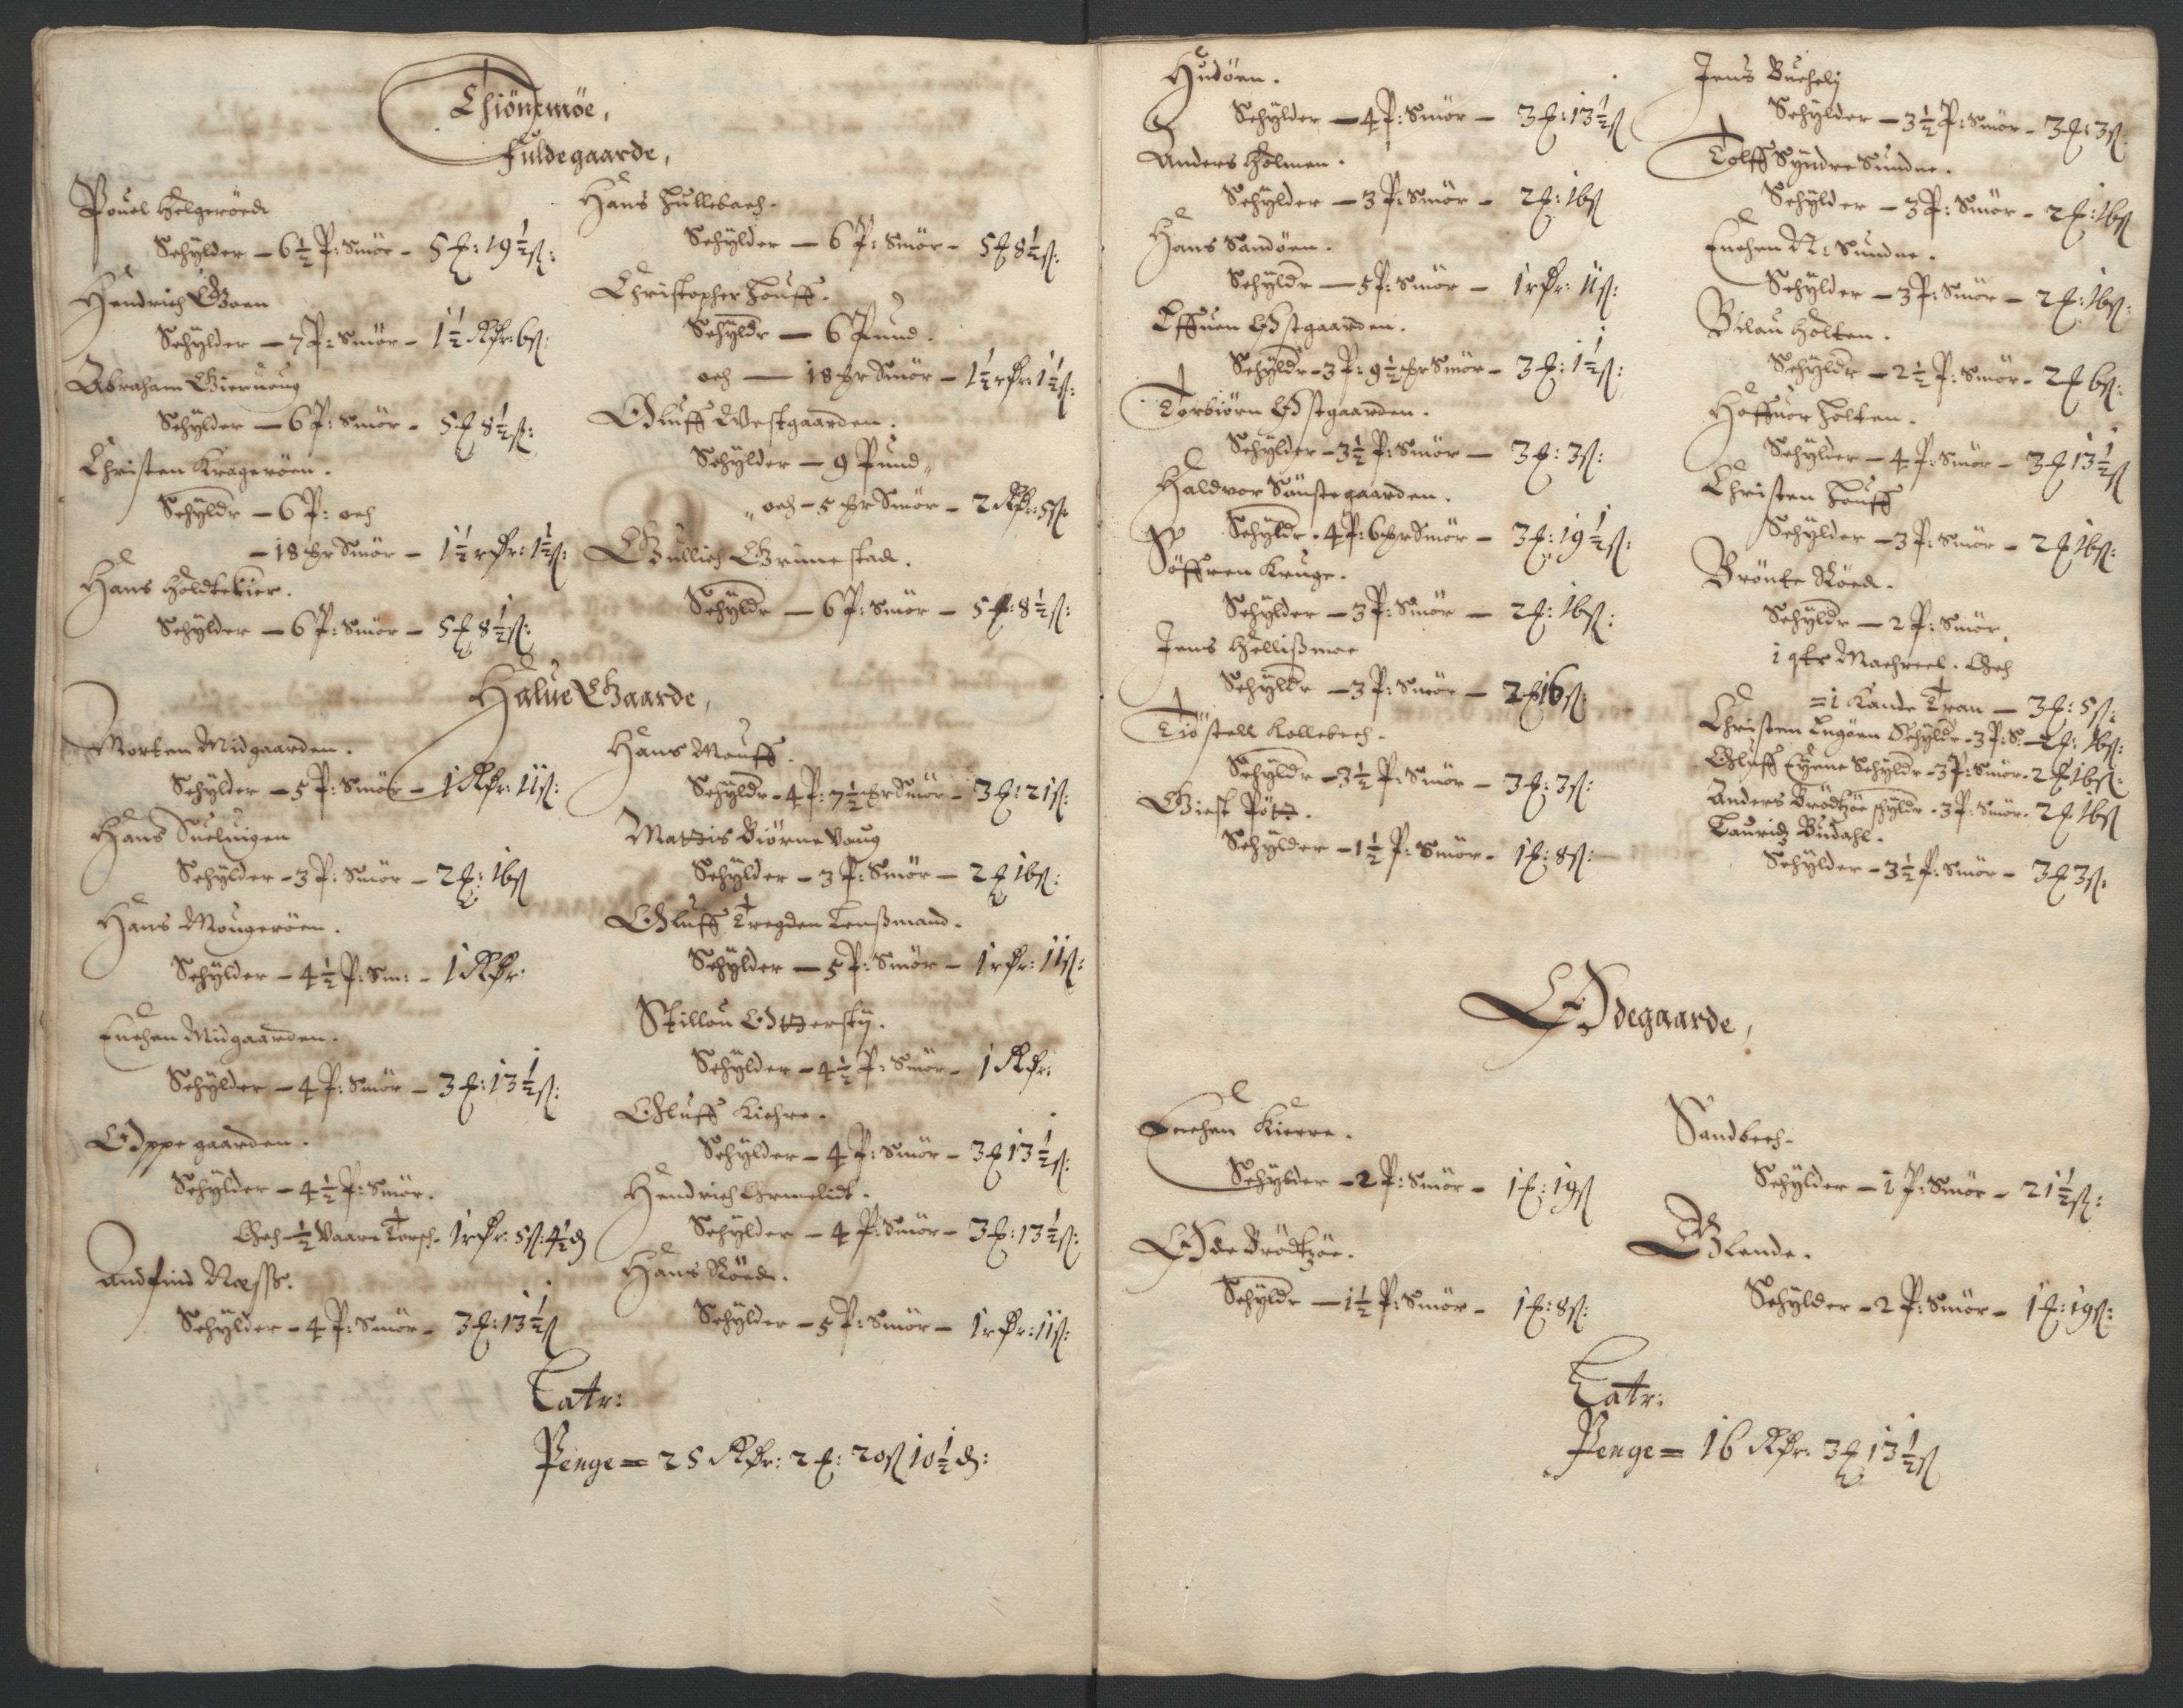 Thiönemöe,
fuldegaarde,
Pouel Helgeröed
Schÿlder — 6½ P: Smör — 5 ₤: 19½ ß:
Hendrich Goen
Schÿlder — 7 P: Smör — 1½ Rdr: 6 ß:
Abraham Gieruoug
Schÿlder — 6 P: Smör — 5 ₤ 8½ ß:
Christen Krageröen.
Schÿldr — 6 P: och
— 18 mr Smör — 1½ rdr: 1½ ß:
Hans Holdtekier.
Schÿlder — 6 P: Smör — 5 ₤ 8½ ß:
Hans Hullebach.
Schÿlder — 6 P: Smör — 5 ₤ 8½ ß:
Christopher Houff.
Schÿldr — 6 Pund.
och — 18 mr Smör — 1½ rdr: 1½ ß:
Oluff Westgaarden.
Schÿlder — 9 Pund
och — 5 mr Smör — 2 Rdr: 5 ß
Gullich Grimestad.
Schÿldr — 6 P: Smör — 5 ₤: 8½ ß:
Halue Gaarde,
Morten Midgaarden.
Schÿlder — 5 P: Smör — 1 Rdr: 11 ß:
Hans Sueluigen
Schÿlder — 3 P: Smör — 2 ₤: 16 ß
Hans Mougeröen.
Schÿlder — 4½ P: Sm: — 1 Rdr:
Enchen Midgaarden.
Schÿlder — 4 P: Smör — 3 ₤: 13½ ß:
Oppegaarden.
Schÿlder — 4½ P: Smör.
Och ½ Vaare Torsch. 1 rdr: 5 ß: 4½ d
Andfind Næss.
Schÿlder — 4 P: Smör — 3 ₤: 13½ ß
Hans Mouff.
Schÿldr — 4 P: 7½ mr Smör — 3 ₤: 21 ß:
Mattis Biörneuoug
Schÿlder — 3 P: Smör — 2 ₤ 16 ß:
Oluff Tregden Lenßmand.
Schÿlder — 5 P: Smör — 1 rdr: 11 ß:
Stillou Ottersty.
Schÿlder — 4½ P: Smör — 1 Rdr:
Oluff Kiehre.
Schÿlder — 4 P: Smör — 3 ₤ 13½ ß:
Hendrich Ormelidt.
Schÿlder — 4 P: Smör — 3 ₤: 13½ ß:
Hans Röed.
Schÿlder — 5 P: Smör — 1 rdr: 11 ß:
Latr:
Penge = 25 Rdr: 2 ₤: 20 ß 10½ d:
Hudöen.
Schÿlder — 4 P: Smör — 3 ₤: 13½ ß
Anders Holmen.
Schÿlder — 3 P: Smör — 2 ₤: 16 ß
Hans Sandöen.
Schÿldr — 5 P: Smör — 1 rdr: 11 ß:
Effuen Østgaarden.
Schÿldr — 3 P: 9½ mr Smör — 3 ₤: 1½ ß:
Torbiörn Østgaarden.
Schÿlder — 3½ P: Smör — 3 ₤: 3 ß:
Haldvor Sönstegaarden.
Schÿldr — 4 P: 6 mr Smör — 3 ₤: 19½ ß:
Söffren Kruge.
Schÿlder — 3 P: Smör — 2 ₤: 16 ß:
Jens Hellißmoe
Schÿldr — 3 P: Smör — 2 ₤ 16 ß:
Tiöstell Kollebech.
Schÿldr — 3½ P: Smör — 3 ₤: 3 ß:
Giest Pött.
Schÿlder — 1½ P: Smör — 1 ₤: 8 ß:
Jens Buehelj
Schÿlder — 3½ P: Smör — 3 ₤: 3 ß:
Tolff Syndre Sundne.
Schÿlder — 3 P: Smör — 2 ₤: 16 ß
Enchen N: Sundne.
Schÿlder — 3 P: Smör — 2 ₤: 16 ß:
Bilau Holten.
Schÿldr — 2½ P: Smör — 2 ₤ 6 ß:
Hoffuor Holten.
Schÿlder — 4 P: Smör — 3 ₤ 13½ ß
Christen Houff
Schÿlder — 3 P: Smör — 2 ₤ 16 ß:
Brönte Röed.
Schÿldr — 2 P: Smör,
1 qtr Machreel. Och
= 1 Kande Tran — 3 ₤: 5 ß:
Christen Lugöen Schÿldr — 3 P: S: — 2 ₤: 16 ß:
Oluff Eÿene Schÿldr — 3 P: Smör — 2 ₤ 16 ß:
Anders Brödtzöe schÿldr — 3 P: Smör — 2 ₤ 16 ß
Lauridz Budahl.
Schÿlder — 3½ P: Smör — 3 ₤ 3 ß:
Ødegaarde,
Enchen Kierre.
Schÿlder — 2 P: Smör — 1 ₤: 19 ß
Øde Brödtzöe.
Schÿldr — 1½ P: Smör — 1 ₤: 8 ß:
Sandbech.
Schÿlder — 1 P: Smör — 21½ ß:
Glende.
Schÿlder — 2 P: Smör — 1 ₤: 19 ß:
Latr:
Penge = 16 Rdr: 3 ₤ 13½ ß